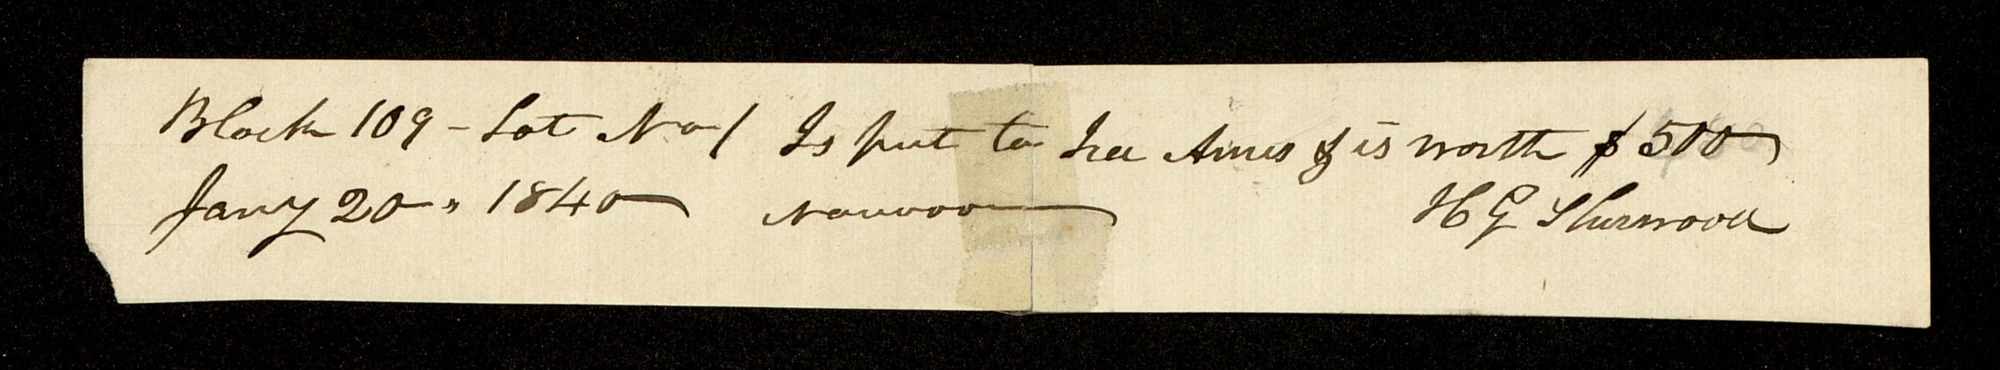 Block 109 - Lot No 1 Is put to Ira Ames & is worth $500
Jany 20, 1840 Nauvoo H G Sherwood